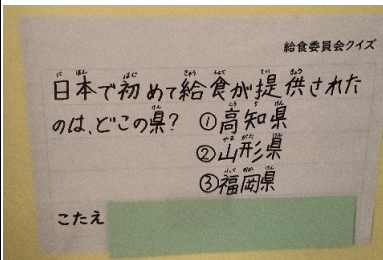 給食委員会クイズ
日本で初めて給食が提供された
のは、どこの県? ①高知県
②山形県
③福岡県
こたえ